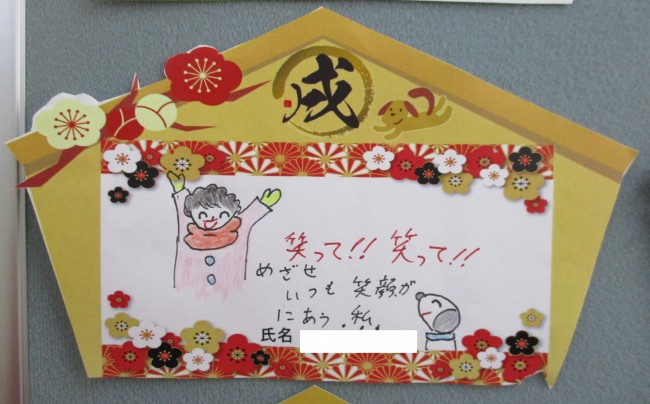 戌
笑って!! 笑って!!
めざせ
いつも 笑顔が
にあう 私...
氏名